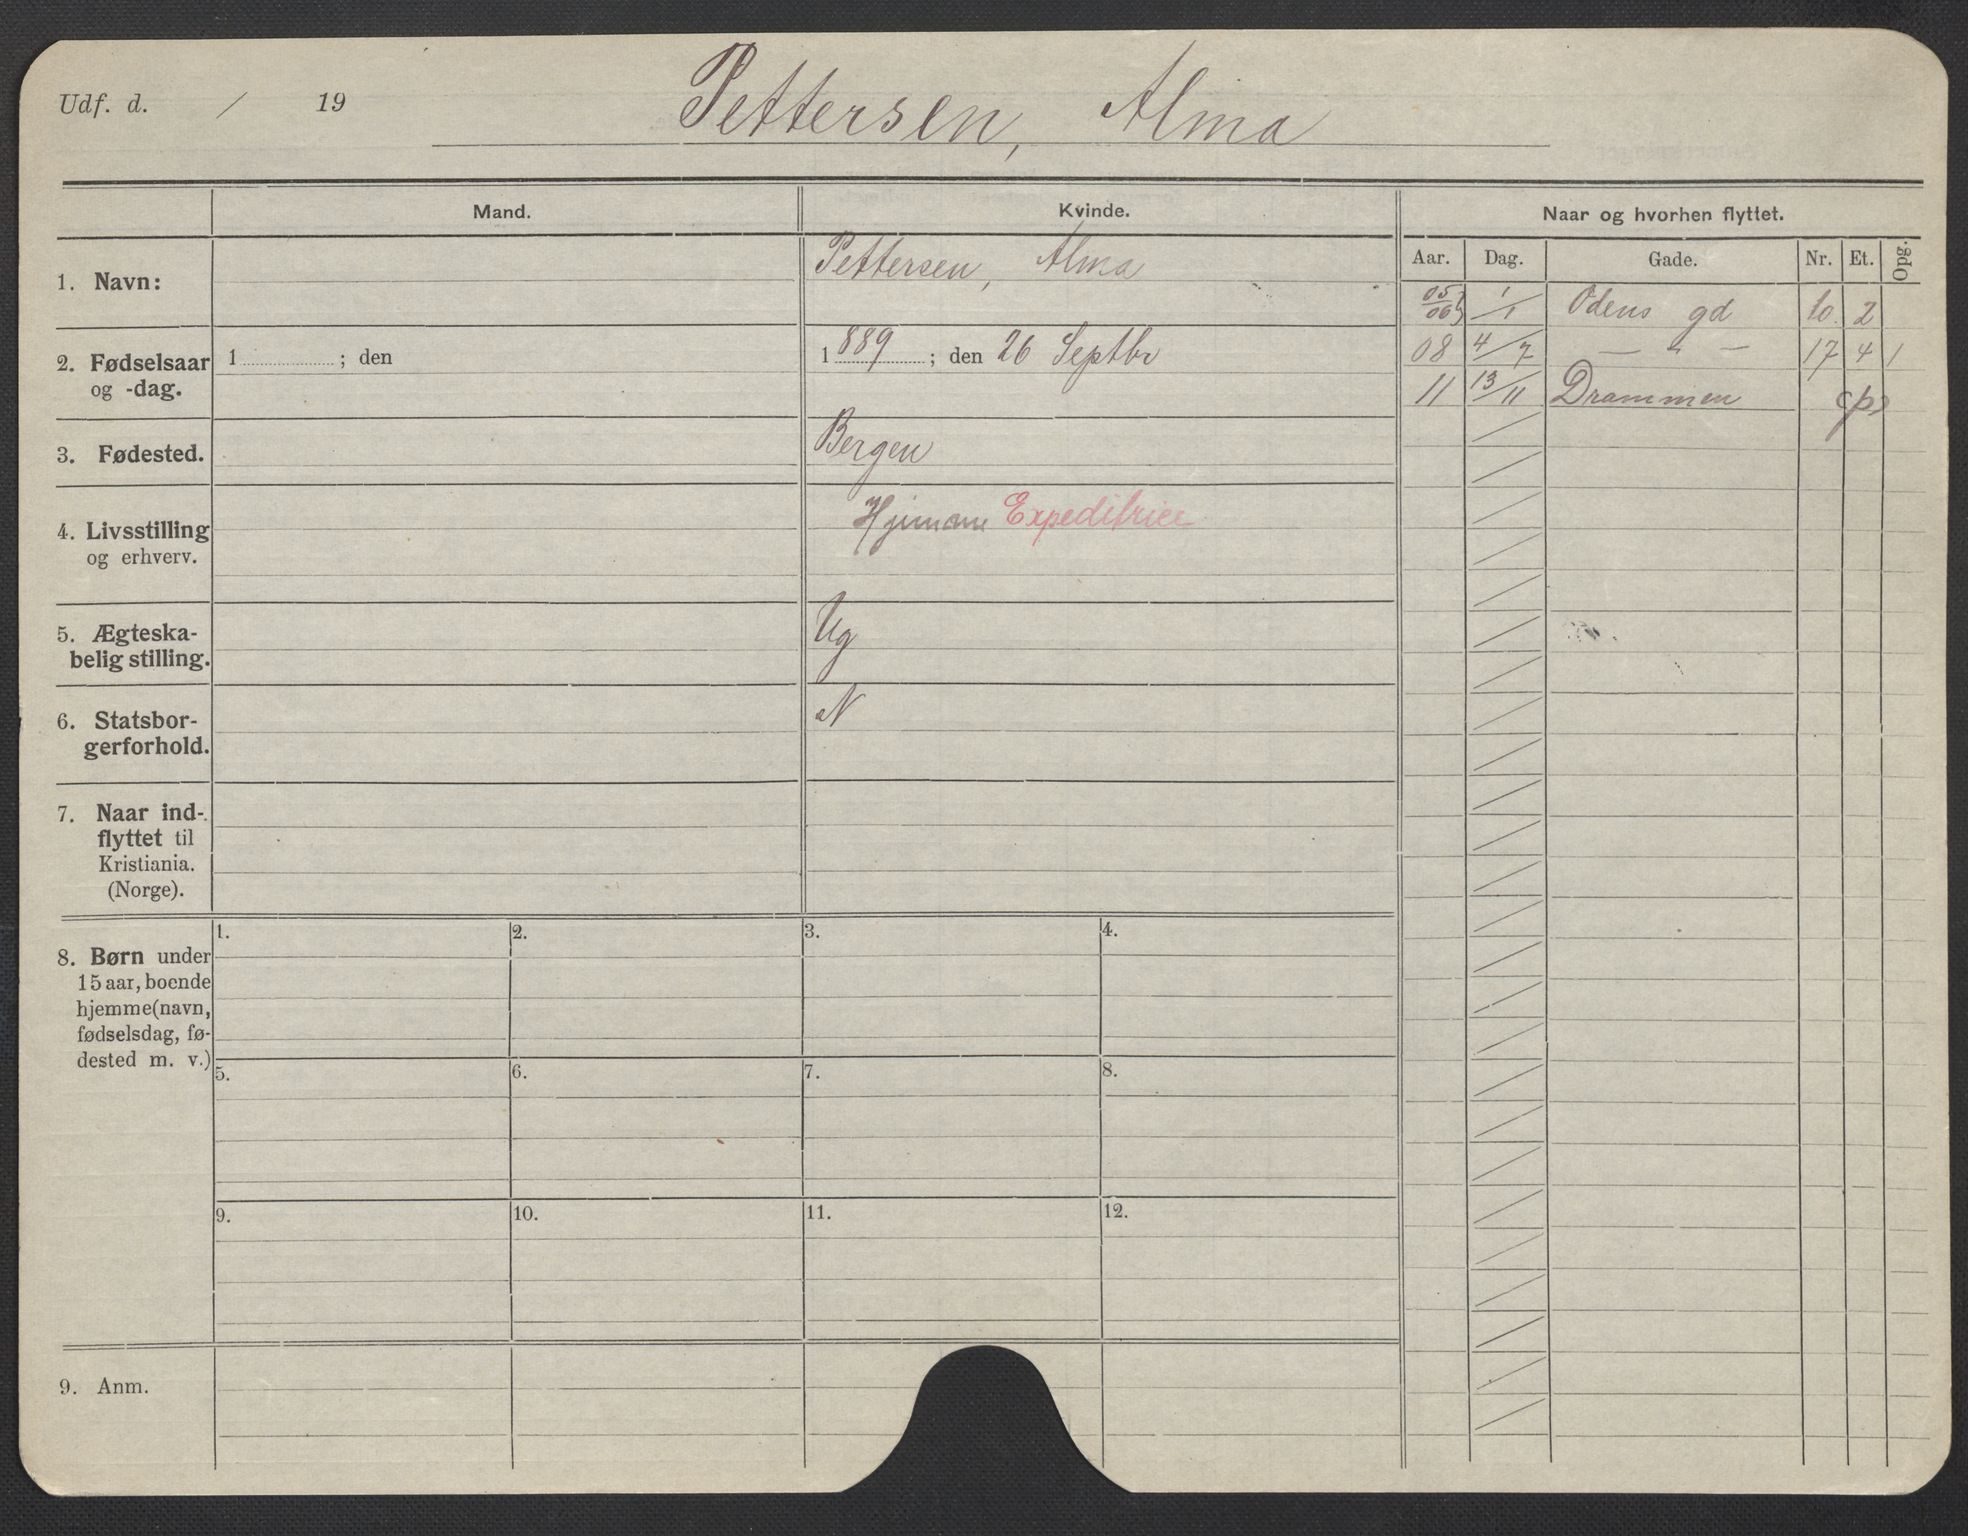 Udf. d. / 19 Pettersen, Alma
Mand. Kvinde. Naar og hvorhen flyttet.
Aar. Dag. Gade. Nr. Et. Opg.
1. Navn: Pettersen, Alma
05/06 1/1 Odens gd 10 2
08 4/7 — " — 17 4 1
11 13/11 Drammen
2. Fødselsaar og -dag. 1 ; den 1889 ; den 26 Septbr
3. Fødested. Bergen
4. Livsstilling og erhverv. Expeditrice
5. Ægteska-
belig stilling. Ug
6. Statsbor-
gerforhold. N
7. Naar ind-
flyttet til
Kristiania.
(Norge).
8. Børn under
15 aar, boende
hjemme (navn,
fødselsdag, fø-
dested m. v.)
1. 2. 3. 4.
5. 6. 7. 8.
9. 10. 11. 12.
9. Anm.